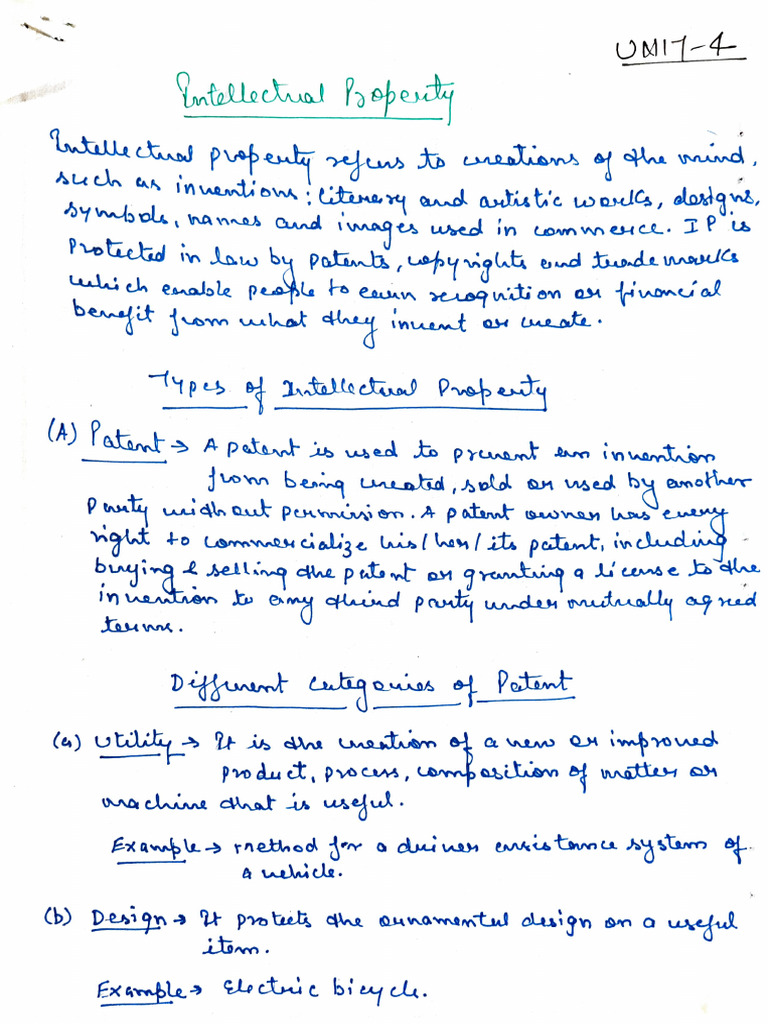 UNIT-4
Intellectual Property
Intellectual property refers to creations of the mind,
such as inventions; literary and artistic works, designs,
symbols, names and images used in commerce. IP is
protected in law by patents, copyrights and trademarks
which enable people to earn recognition or financial
benefit from what they invent or create.
Types of Intellectual Property
(A) Patent → A patent is used to prevent an invention
from being created, sold or used by another
party without permission. A patent owner has every
right to commercialize his/her/its patent, including
buying & selling the patent or granting a license to the
invention to any third party under mutually agreed
terms.
Different categories of Patent
(a) Utility → It is the creation of a new or improved
product, process, composition of matter or
machine that is useful.
Example → method for a driver assistance system of
a vehicle.
(b) Design → It protects the ornamental design on a useful
item.
Example → Electric bicycle.